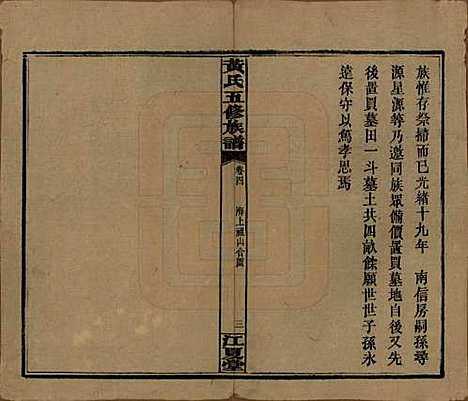 族惟存祭掃而已光緒十九年　南信房嗣孫尋
源星源等乃邀同族眾備價置買墓地自後又先
後置買墓田一斗墓土共四畝餘願世世子孫永
遠保守以篤孝思焉
黃氏五修族譜
卷四
海上祖山合圖
三
江夏堂